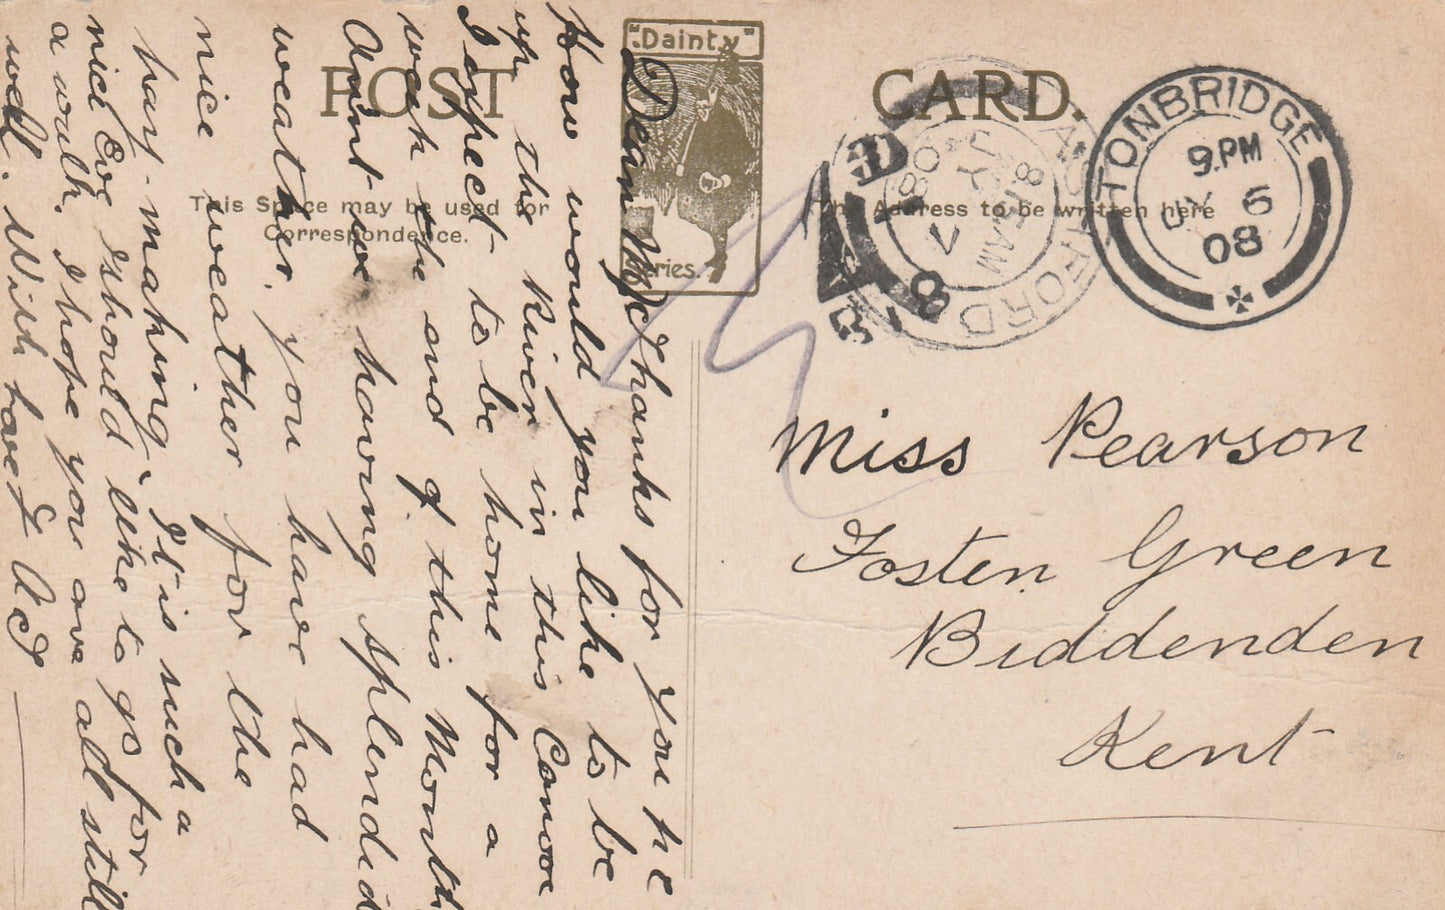 POST CARD.
"Dainty"
Series.
This Space may be used for
Correspondence.
The Address to be written here
TONBRIDGE
9.PM
JY 6
08
ASHFORD
8 15 AM
JY 7
08
B18
Miss Pearson
Fosten Green
Biddenden
Kent
Dear M Thanks for you
How would you like to be
up the River in this Canoe
I expect to be home for a
week the end of this Month
Aint we having splendid
weather. you have had
nice weather for the
hay-making. It is such a
nice Eve I should like to go for
a walk. I hope you are all still
well. With love f A